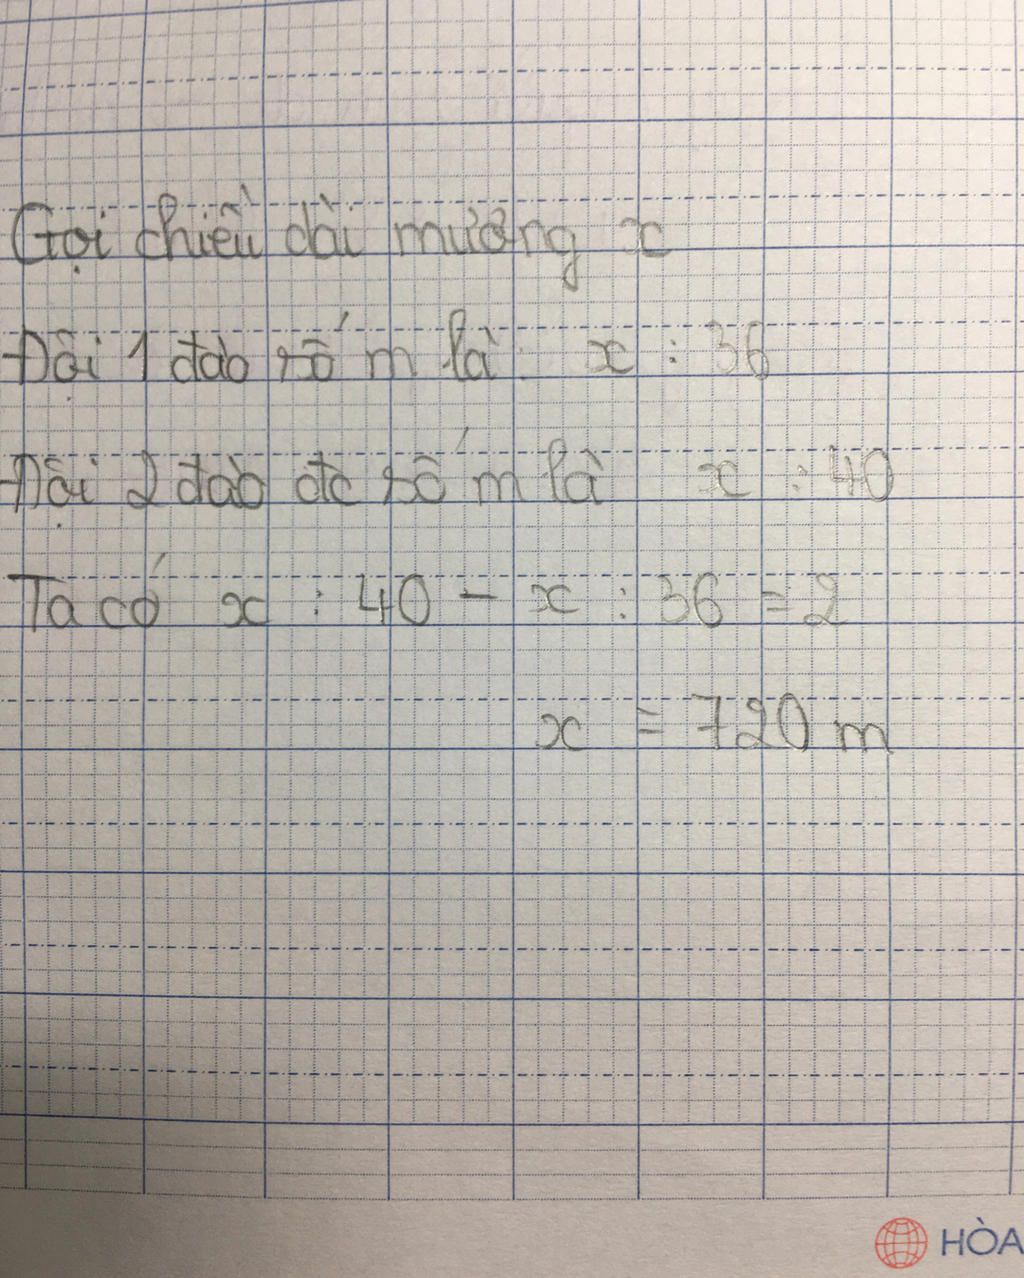 Gọi chiều dài mương x
Đội 1 đào số m là: x : 36
Đội 2 đào đc số m là x : 40
Ta có x : 40 - x : 36 = 2
x = 720 m
HÒA